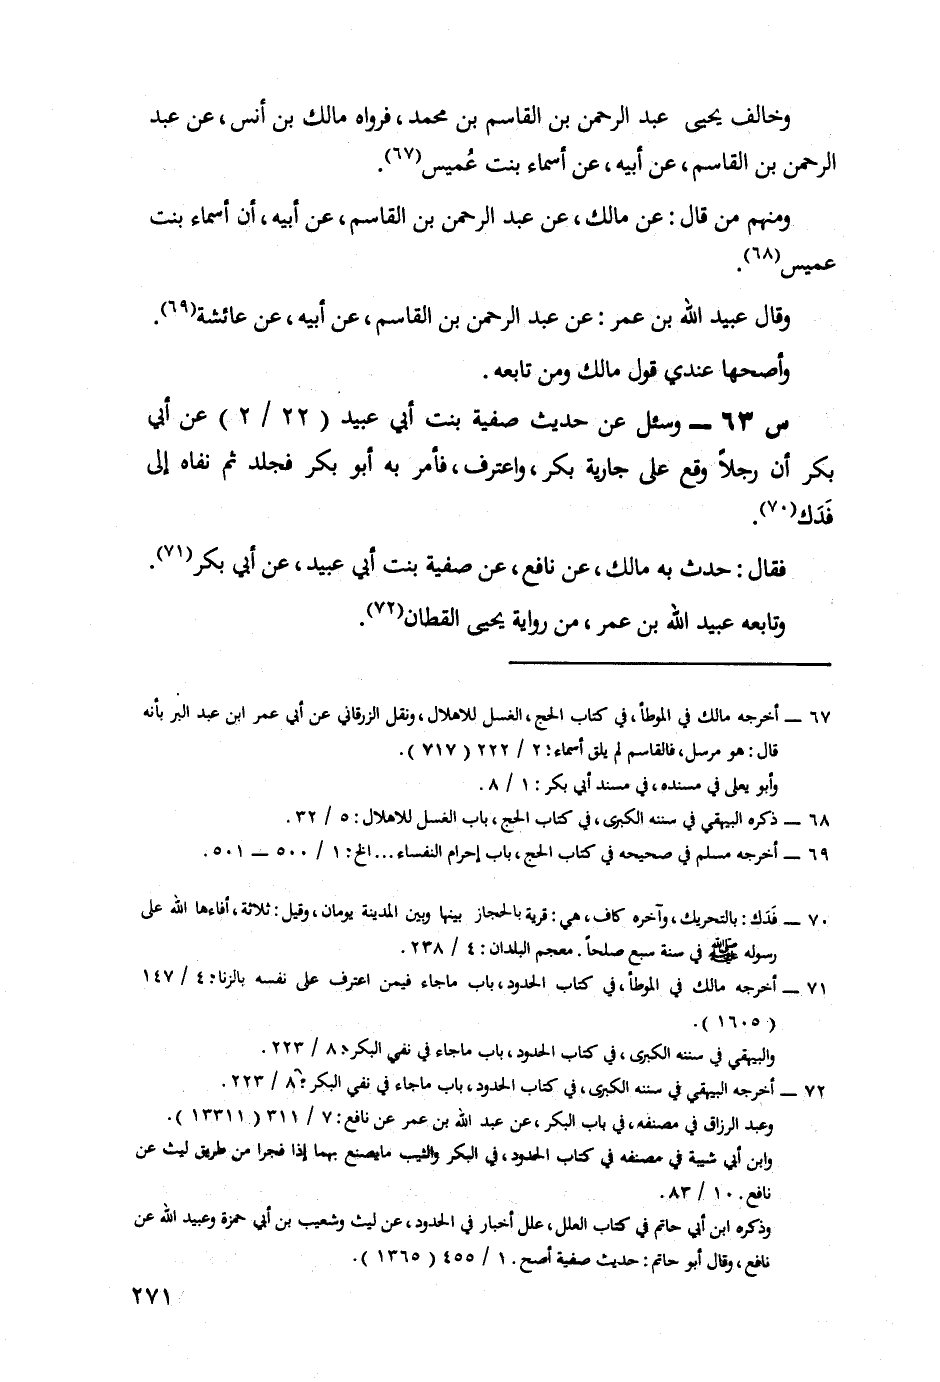 وخالف يحيى عبد الرحمن بن القاسم بن محمد، فرواه مالك بن أنس، عن عبد
الرحمن بن القاسم، عن أبيه، عن أسماء بنت عُميس(٦٧).
ومنهم من قال: عن مالك، عن عبد الرحمن بن القاسم، عن أبيه، أن أسماء بنت
عميس(٦٨).
وقال عبيد الله بن عمر: عن عبد الرحمن بن القاسم، عن أبيه، عن عائشة(٦٩).
وأصحها عندي قول مالك ومن تابعه.
س ٦٣ — وسئل عن حديث صفية بنت أبي عبيد (٢٢ / ٢) عن أبي
بكر أن رجلاً وقع على جارية بكر، واعترف، فأمر به أبو بكر فجلد ثم نفاه إلى
فَدَك(٧٠).
فقال: حدث به مالك، عن نافع، عن صفية بنت أبي عبيد، عن أبي بكر(٧١).
وتابعه عبيد الله بن عمر، من رواية يحيى القطان(٧٢).
٦٧ — أخرجه مالك في الموطأ، في كتاب الحج، الغسل للاهلال، ونقل الزرقاني عن أبي عمر ابن عبد البر بأنه
قال: هو مرسل، فالقاسم لم يلق أسماء: ٢ / ٢٢٢ (٧١٧).
وأبو يعلى في مسنده، في مسند أبي بكر: ١ / ٨.
٦٨ — ذكره البيهقي في سننه الكبرى، في كتاب الحج، باب الغسل للاهلال: ٥ / ٣٢.
٦٩ — أخرجه مسلم في صحيحه في كتاب الحج، باب إحرام النفساء... الخ: ١ / ٥٠٠ — ٥٠١.
٧٠ — فَدَك: بالتحريك، وآخره كاف، هي: قرية بالحجاز بينها وبين المدينة يومان، وقيل: ثلاثة، أفاءها الله على
رسوله ﷺ في سنة سبع صلحاً. معجم البلدان: ٤ / ٢٣٨.
٧١ — أخرجه مالك في الموطأ، في كتاب الحدود، باب ماجاء فيمن اعترف على نفسه بالزنا: ٤ / ١٤٧
(١٦٠٥).
والبيهقي في سننه الكبرى، في كتاب الحدود، باب ماجاء في نفي البكر: ٨ / ٢٢٣.
٧٢ — أخرجه البيهقي في سننه الكبرى، في كتاب الحدود، باب ماجاء في نفي البكر: ٨ / ٢٢٣.
وعبد الرزاق في مصنفه، في باب البكر، عن عبد الله بن عمر عن نافع: ٧ / ٣١١ (١٣٣١١).
وابن أبي شيبة في مصنفه في كتاب الحدود، في البكر والثيب مايصنع بهما إذا فجرا من طريق ليث عن
نافع. ١٠ / ٨٣.
وذكره ابن أبي حاتم في كتاب العلل، علل أخبار في الحدود، عن ليث وشعيب بن أبي حمزة وعبيد الله عن
نافع، وقال أبو حاتم: حديث صفية أصح. ١ / ٤٥٥ (١٣٦٥).
٢٧١